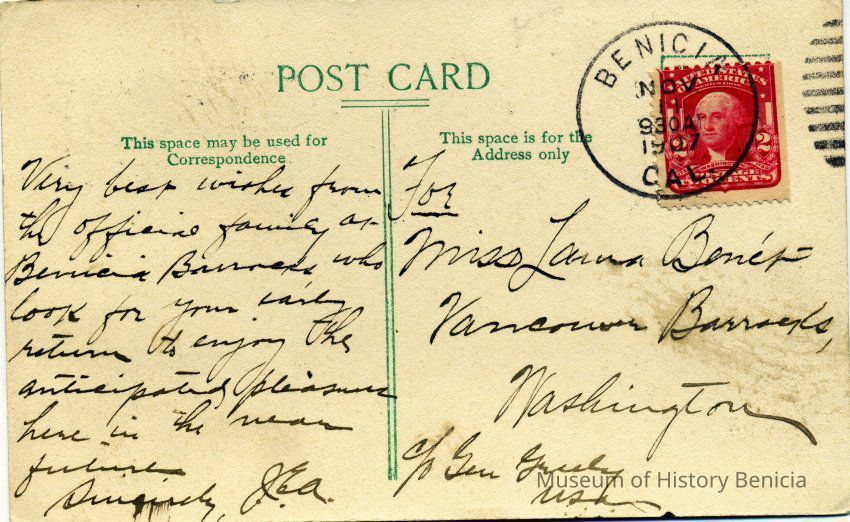 POST CARD
This space may be used for
Correspondence
This space is for the
Address only
BENICIA
NOV
11
930A
1907
CAL.
UNITED STATES
OF AMERICA
2
2
TWO CENTS
Very best wishes from
the official family at
Benicia Barracks who
look for your early
return to enjoy the
anticipated pleasure
here in the near
future
Sincerely, J.E.A.
For
Miss Laura Benét
Vancouver Barracks,
Washington
c/o Gen Greely
USA
Museum of History Benicia